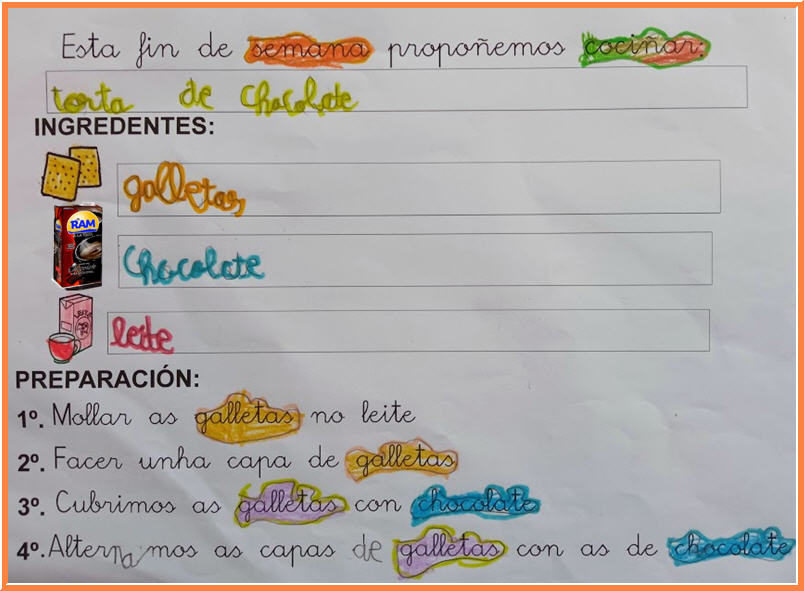 Esta fin de semana propoñemos cociñar:
torta de chocolate
INGREDENTES:
galletas
RAM
chocolate
leite
PREPARACIÓN:
1º. Mollar as galletas no leite
2º. Facer unha capa de galletas
3º. Cubrimos as galletas con chocolate
4º. Alternamos as capas de galletas con as de chocolate